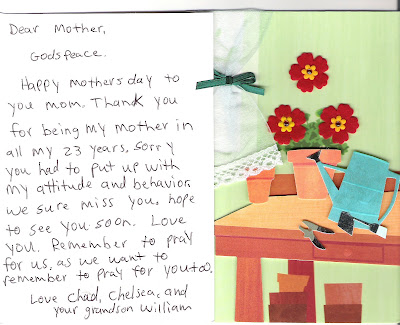 Dear Mother,
Godspeace.
Happy mothers day to
you mom. Thank you
for being my mother in
all my 23 years, sorry
you had to put up with
my attitude and behavior.
We sure miss you, hope
to see you soon. Love
you. Remember to pray
for us, as we want to
remember to pray for you too.
Love Chad, Chelsea, and
your grandson William